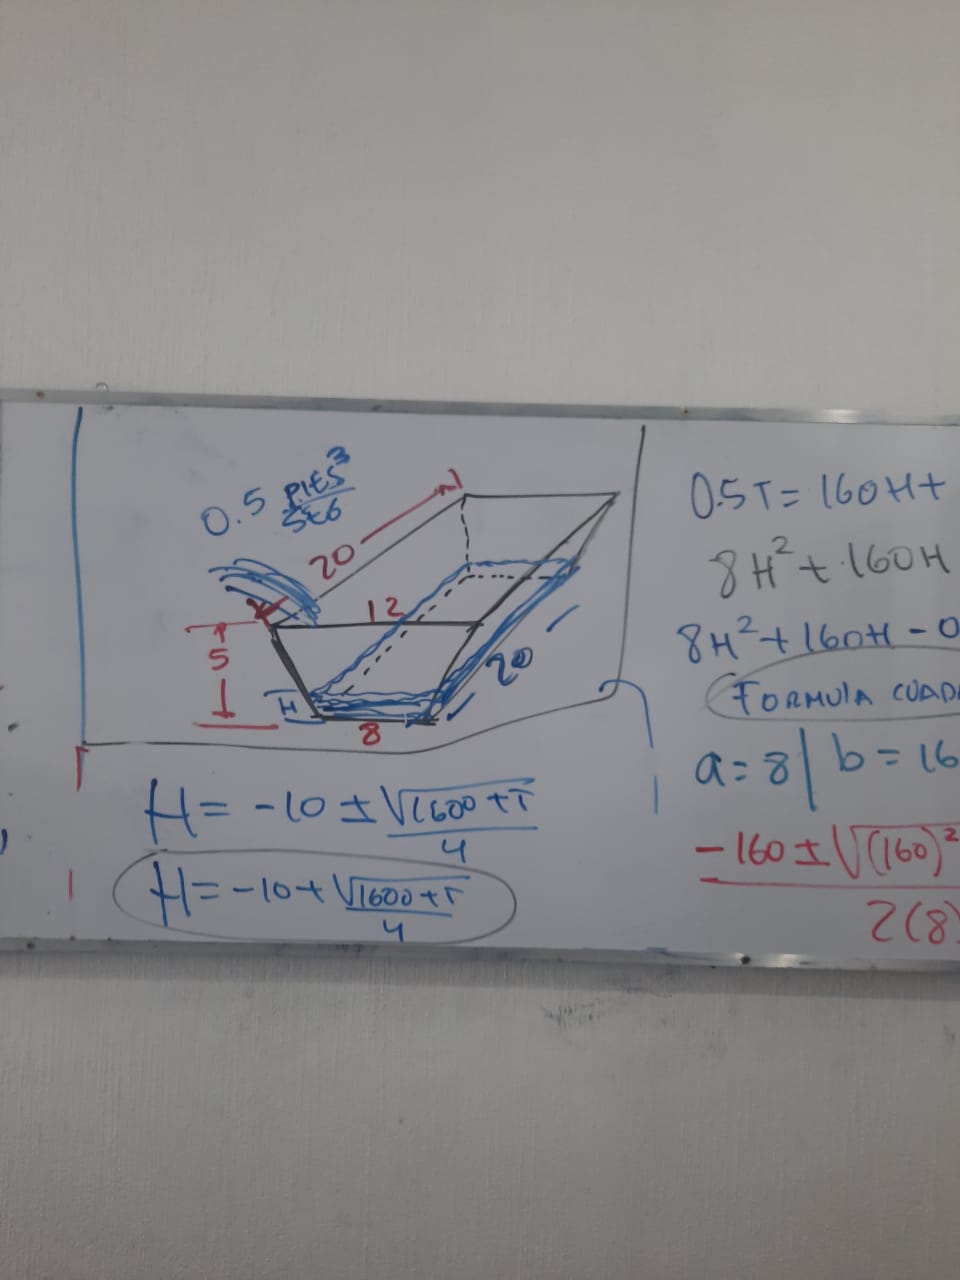 0.5 PIES³/SEG
20
12
5
H
20
8
H = -10 ± √1600 + T / 4
H = -10 + √1600 + T / 4
0.5T = 160H +
8H² + 160H
8H² + 160H - 0
FORMULA CUAD
a = 8 | b = 16
-160 ± √(160)²
2(8)